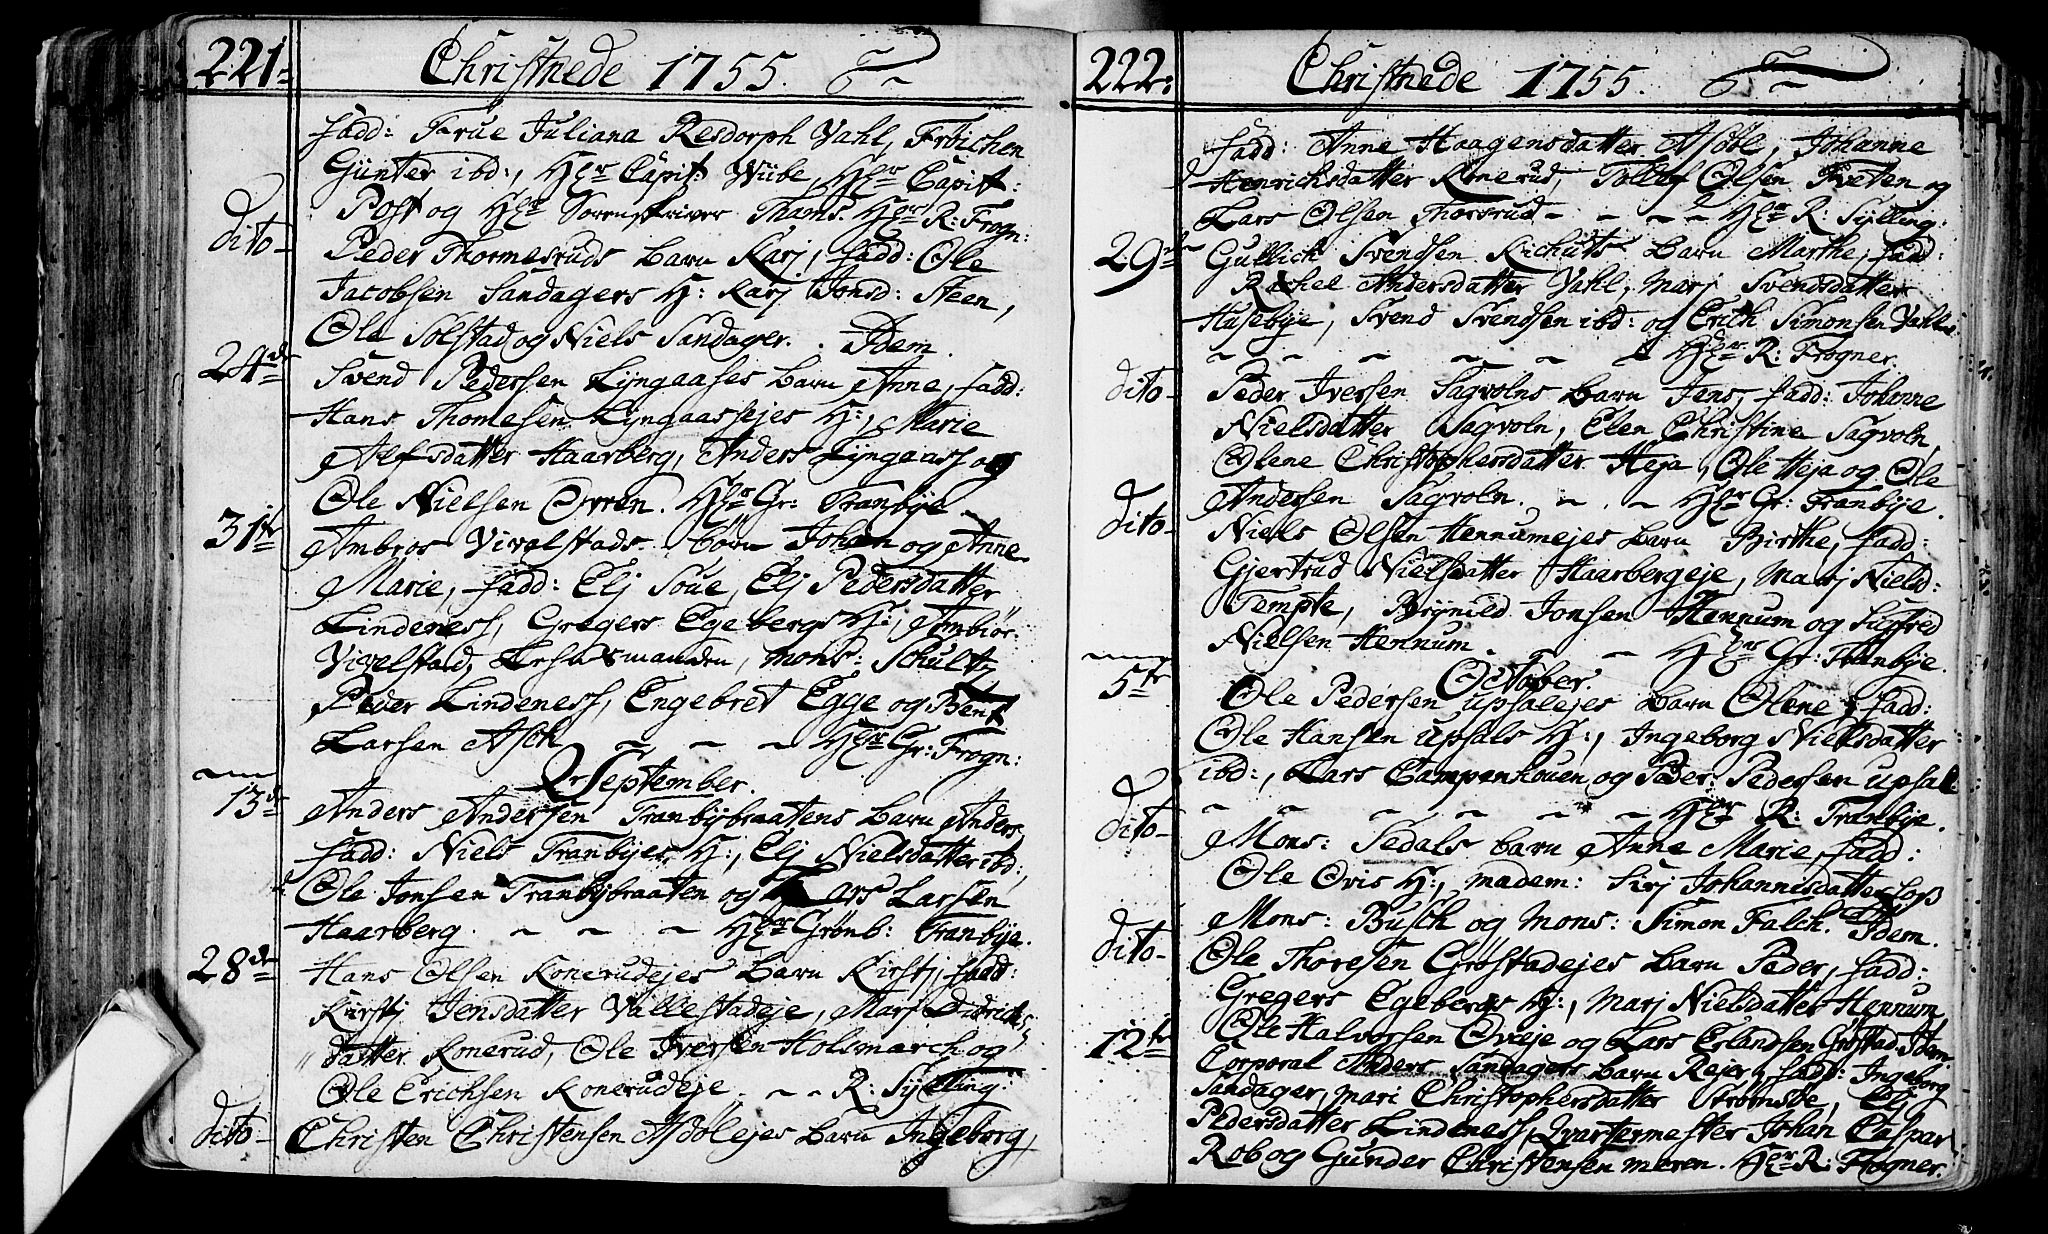 221.
Christnede 1755.
fadd: Frue Juliana Resdorph Vahl, Fröichen
Günter ibd:, Hr Capit: Wübe, Hr Capit:
Post og Hr Sorenskriver Thams. Hr R: Frogn:
dito- Peder Thormesruds barn Karj, fadd: Ole
Jacobsen Sandagers H: Karj Jonsd: Steen,
Ole Solstad og Niels Sandager. Idem.
24de Svend Pedersen Lyngaases barn Anne, fadd:
Hans Thomesen Lyngaassejes H:, Marie
Alfsdatter Haarberg, Anders Lyngaass og
Ole Nielsen Ovren. Hr Gr: Tranbye.
31te Ambros Vivelstads börn Johan og Anne
Marie, fadd: Elj Soue, Elj Pedersdatter
Lindeness, Gregers Egebergs H:, Ambiör
Vivelstad, Lehnsmanden, Mons: Schultz
Peder Lindeness, Engebret Egge og Bent
Larsen Asch - - - Hr Gr: Frogn:
September.
13de Anders Andersen Tranbybraatens barn Anders,
fadd: Niels Tranbyes H:, Elj Nielsdatter ibd:,
Ole Jonsen Tranbybraaten og Lars Larsen
Haarberg. - - - Hr Grönb: Tranbye.
28de Hans Olsen Konerudejes barn Kirstj, fadd:
Kirstj Jensdatter Vallestadeje, Marj Didrichs
datter Konerud, Ole Iversen Holsmarch og
Ole Erichsen Konerudeje - - R: Sylling:
dito- Christen Christensen Asdölejes barn Ingeborg,
222.
Christnede 1755.
fadd: Anne Haagensdatter Asdöl, Johanne
Henrichsdatter Konerud, Tollef Olsen Tveten og
Lars Olsen Thorsrud - - - - Hr R: Sylling:
29de Gullich Svendsen Kichuts barn Marthe, fadd:
Rachel Andersdatter Vahl, Marj Svendsdatter
Husebye, Svend Svendsen ibd: og Erich Simonsen Vahl
- - - - - - Hr R: Frogner.
dito- Peder Iversen Sagvolns barn Jens, fadd: Johanne
Nielsdatter Sagvoln, Elen Christine Sagvoln,
Olene Christophersdatter Heja, Ole Heja og Ole
Andersen Sagvoln. - - - Hr Gr: Tranbye.
dito- Niels Olsen Hennumejes barn Birthe, fadd:
Gjertrud Nielsdatter Haarbergeje, Marj Nielsd:
Tempte, Brynild Jonsen Hennum og Siufred
Nielsen Hennum. - - Hr Gr: Tranbye.
October.
5te Ole Pedersen Upsalejes barn Olene, fadd:
Ole Hansen Upsals H:, Ingeborg Nielsdatter
ibd:, Lars Campenhouen og Peder Pedersen Upsal:
- - - - - - Hr R: Tranbye.
dito- Mons: Sedals barn Anne Marie, fadd:
Ole Oris H:, Madem: Sirj Johannesdatter Loss
Mons: Busch og Mons: Simon Falch. Idem.
dito- Ole Thoresen Gröstadejes barn Peder, fadd:
Gregers Egebergs H:, Marj Nielsdatter Hennum,
Ole Halvorsen Oveje og Lars Erlandsen Gröstad. Idem.
12te Corporal Anders Sandagers barn Rejer, fadd: Ingeborg
Sandager, Mari Christophersdatter Strömsöe, Elj
Pedersdatter Lindeness, Qvartermester Johan Caspar
Rob og Gunder Christensen Meren. Hr R: Frogner.